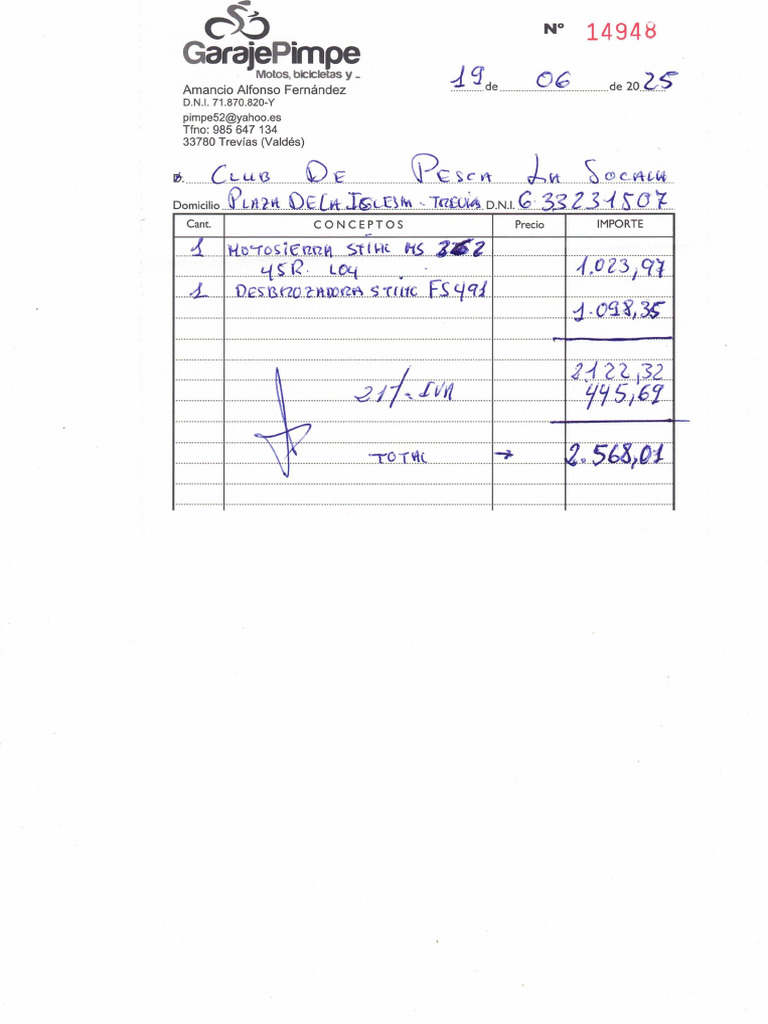 GarajePimpe
Motos, bicicletas y ...
Amancio Alfonso Fernández
D.N.I. 71.870.820-Y
pimpe52@yahoo.es
Tfno: 985 647 134
33780 Trevías (Valdés)
Nº 14948
19 de 06 de 2025
D. CLUB DE PESCA LA SOCALA
Domicilio PLAZA DE LA IGLESIA - TREVIA D.N.I. G 33231507
Cant. CONCEPTOS Precio IMPORTE
1 MOTOSIERRA STIHL MS
45R. LO4 1.023,97
1 DESBROZADORA STIHL FS491
1.098,35
2122,32
21%. IVA 445,69
TOTAL → 2.568,01